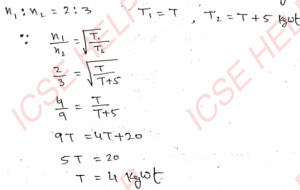 n₁ : n₂ = 2 : 3    T₁ = T , T₂ = T + 5 kgwt
∵ n₁/n₂ = √(T₁/T₂)
2/3 = √(T/(T+5))
4/9 = T/(T+5)
9T = 4T+20
5T = 20
T = 4 kgwt
ICSE HELP
ICSE HELP